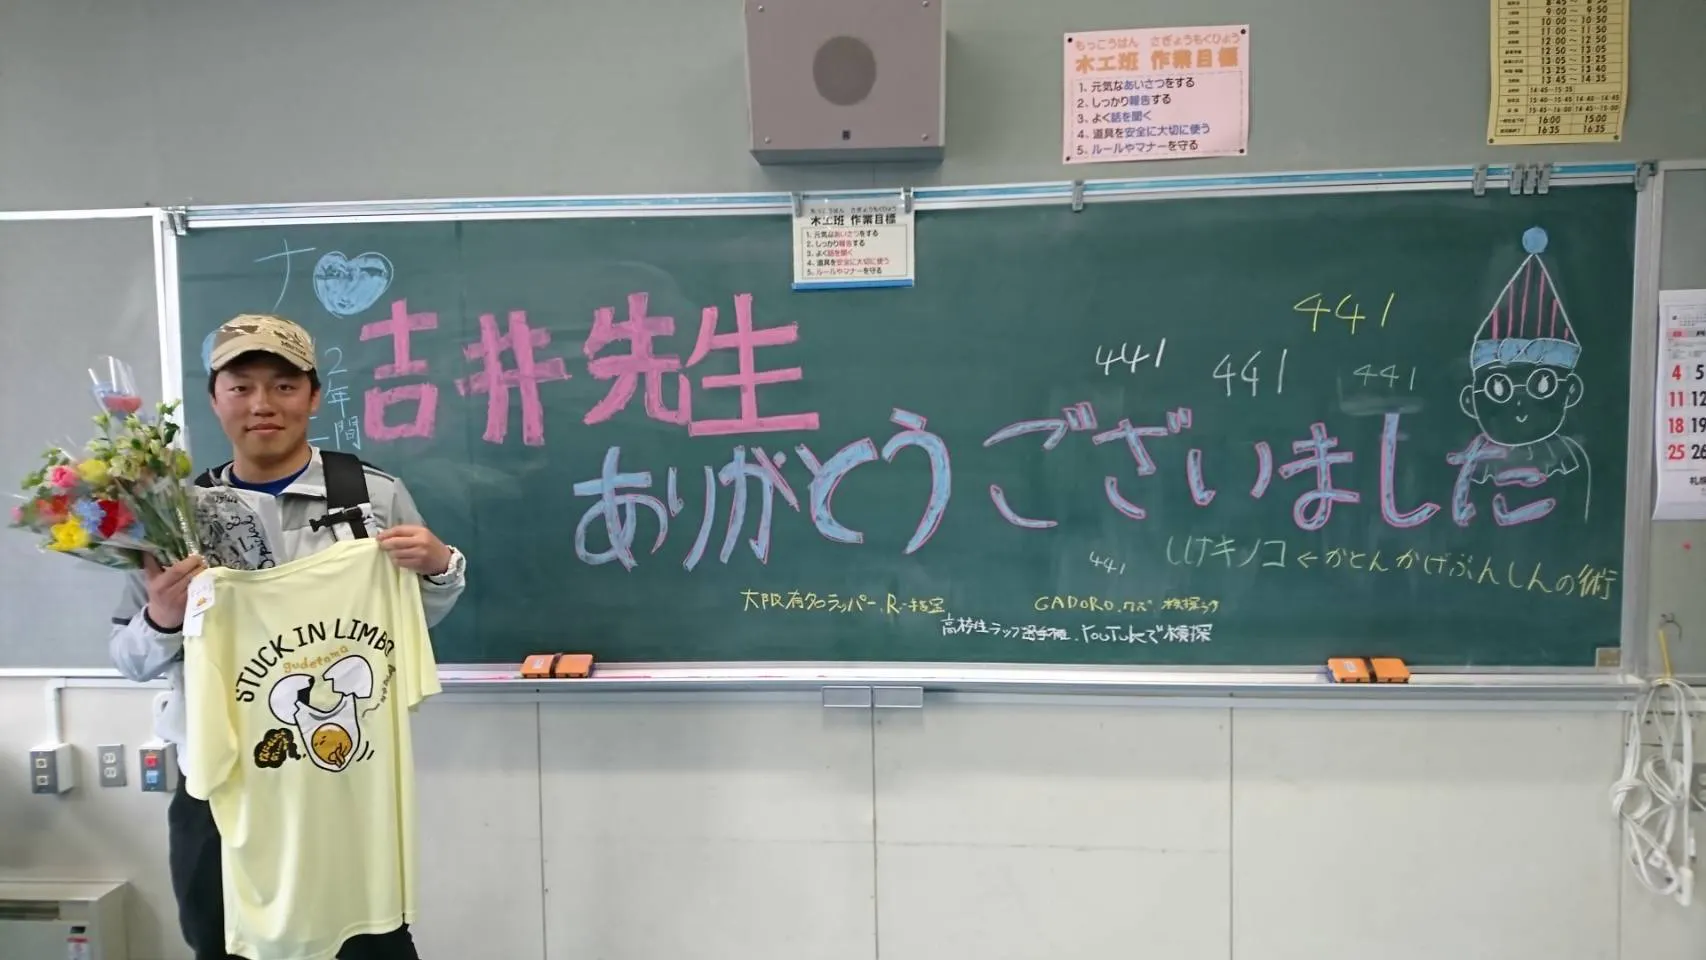 もっこうはん さぎょうもくひょう
木工班 作業目標
1. 元気なあいさつをする
2. しっかり報告する
3. よく話を聞く
4. 道具を安全に大切に使う
5. ルールやマナーを守る
9:00 ～ 9:50
10:00 ～ 10:50
11:00 ～ 11:50
12:00 ～ 12:50
12:50 ～ 13:05
13:05 ～ 13:25
13:25 ～ 13:40
13:45 ～ 14:35
14:45～15:35
15:40～15:45 14:40～14:45
15:45～16:00 14:45～15:00
16:00 15:00
16:35 16:35
もっこうはん さぎょうもくひょう
木工班 作業目標
1. 元気なあいさつをする
2. しっかり報告する
3. よく話を聞く
4. 道具を安全に大切に使う
5. ルールやマナーを守る
2年間
吉井先生
ありがとうございました
441
441
441
441
441
しけキノコ ← かとんかげぶんしんの術
大阪有名ラッパー、R-指定
GADORO
高校生ラップ選手権、YouTubeで検探
STUCK IN LIMBO
gudetama
4 5
11 12
18 19
25 26
札